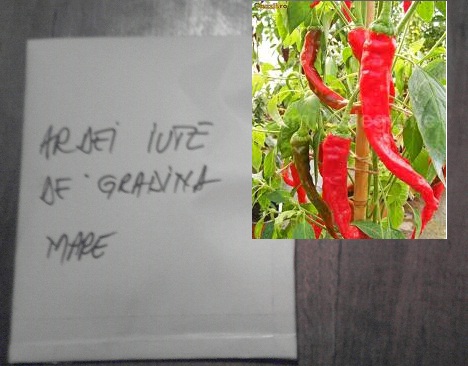 ARDEI IUTE
DE GRADINA
MARE